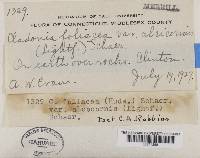 MERRILL
1329.
FLORA OF CONNECTICUT, MIDDLESEX COUNTY
Cladonia foliacea var. alcicornis
(Lightf.) Schaer.
On earth over rocks, Clinton.
A. W. Evans. July 19, 1927.
1329 C. foliacea (Huds.) Schaer.
var. alcicornis (Lightf.)
Schaer.
Det C. A. Robbins